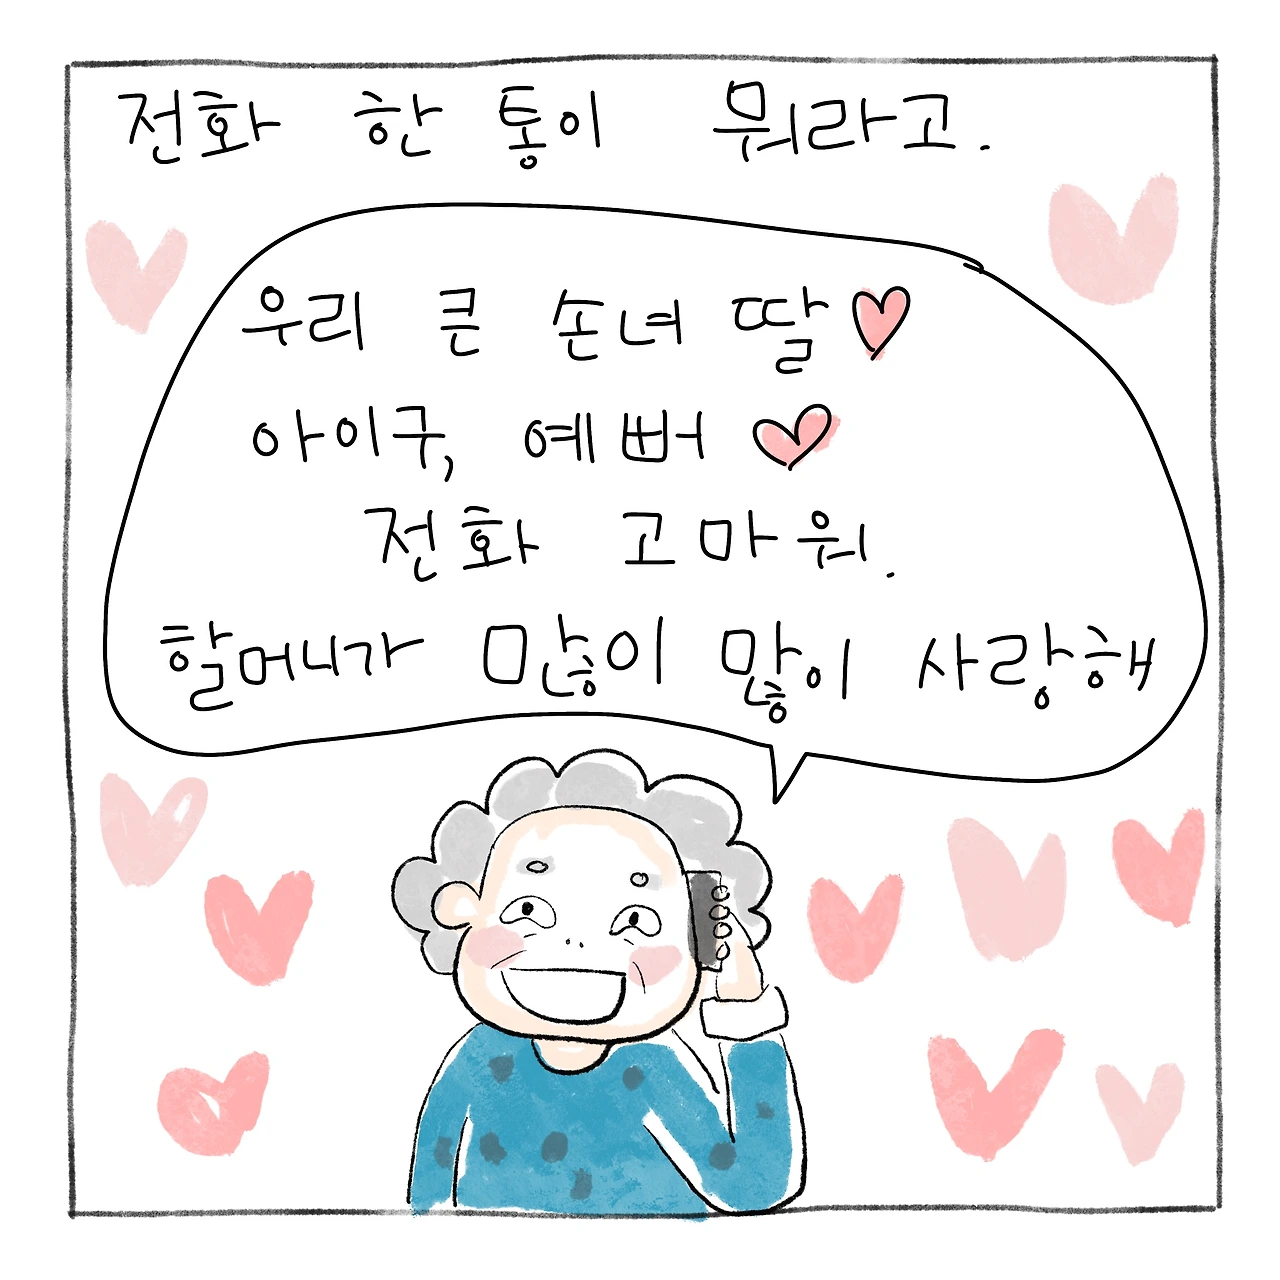 전화 한 통이 뭐라고.
우리 큰 손녀 딸♥
아이구, 예뻐♥
전화 고마워.
할머니가 많이 많이 사랑해